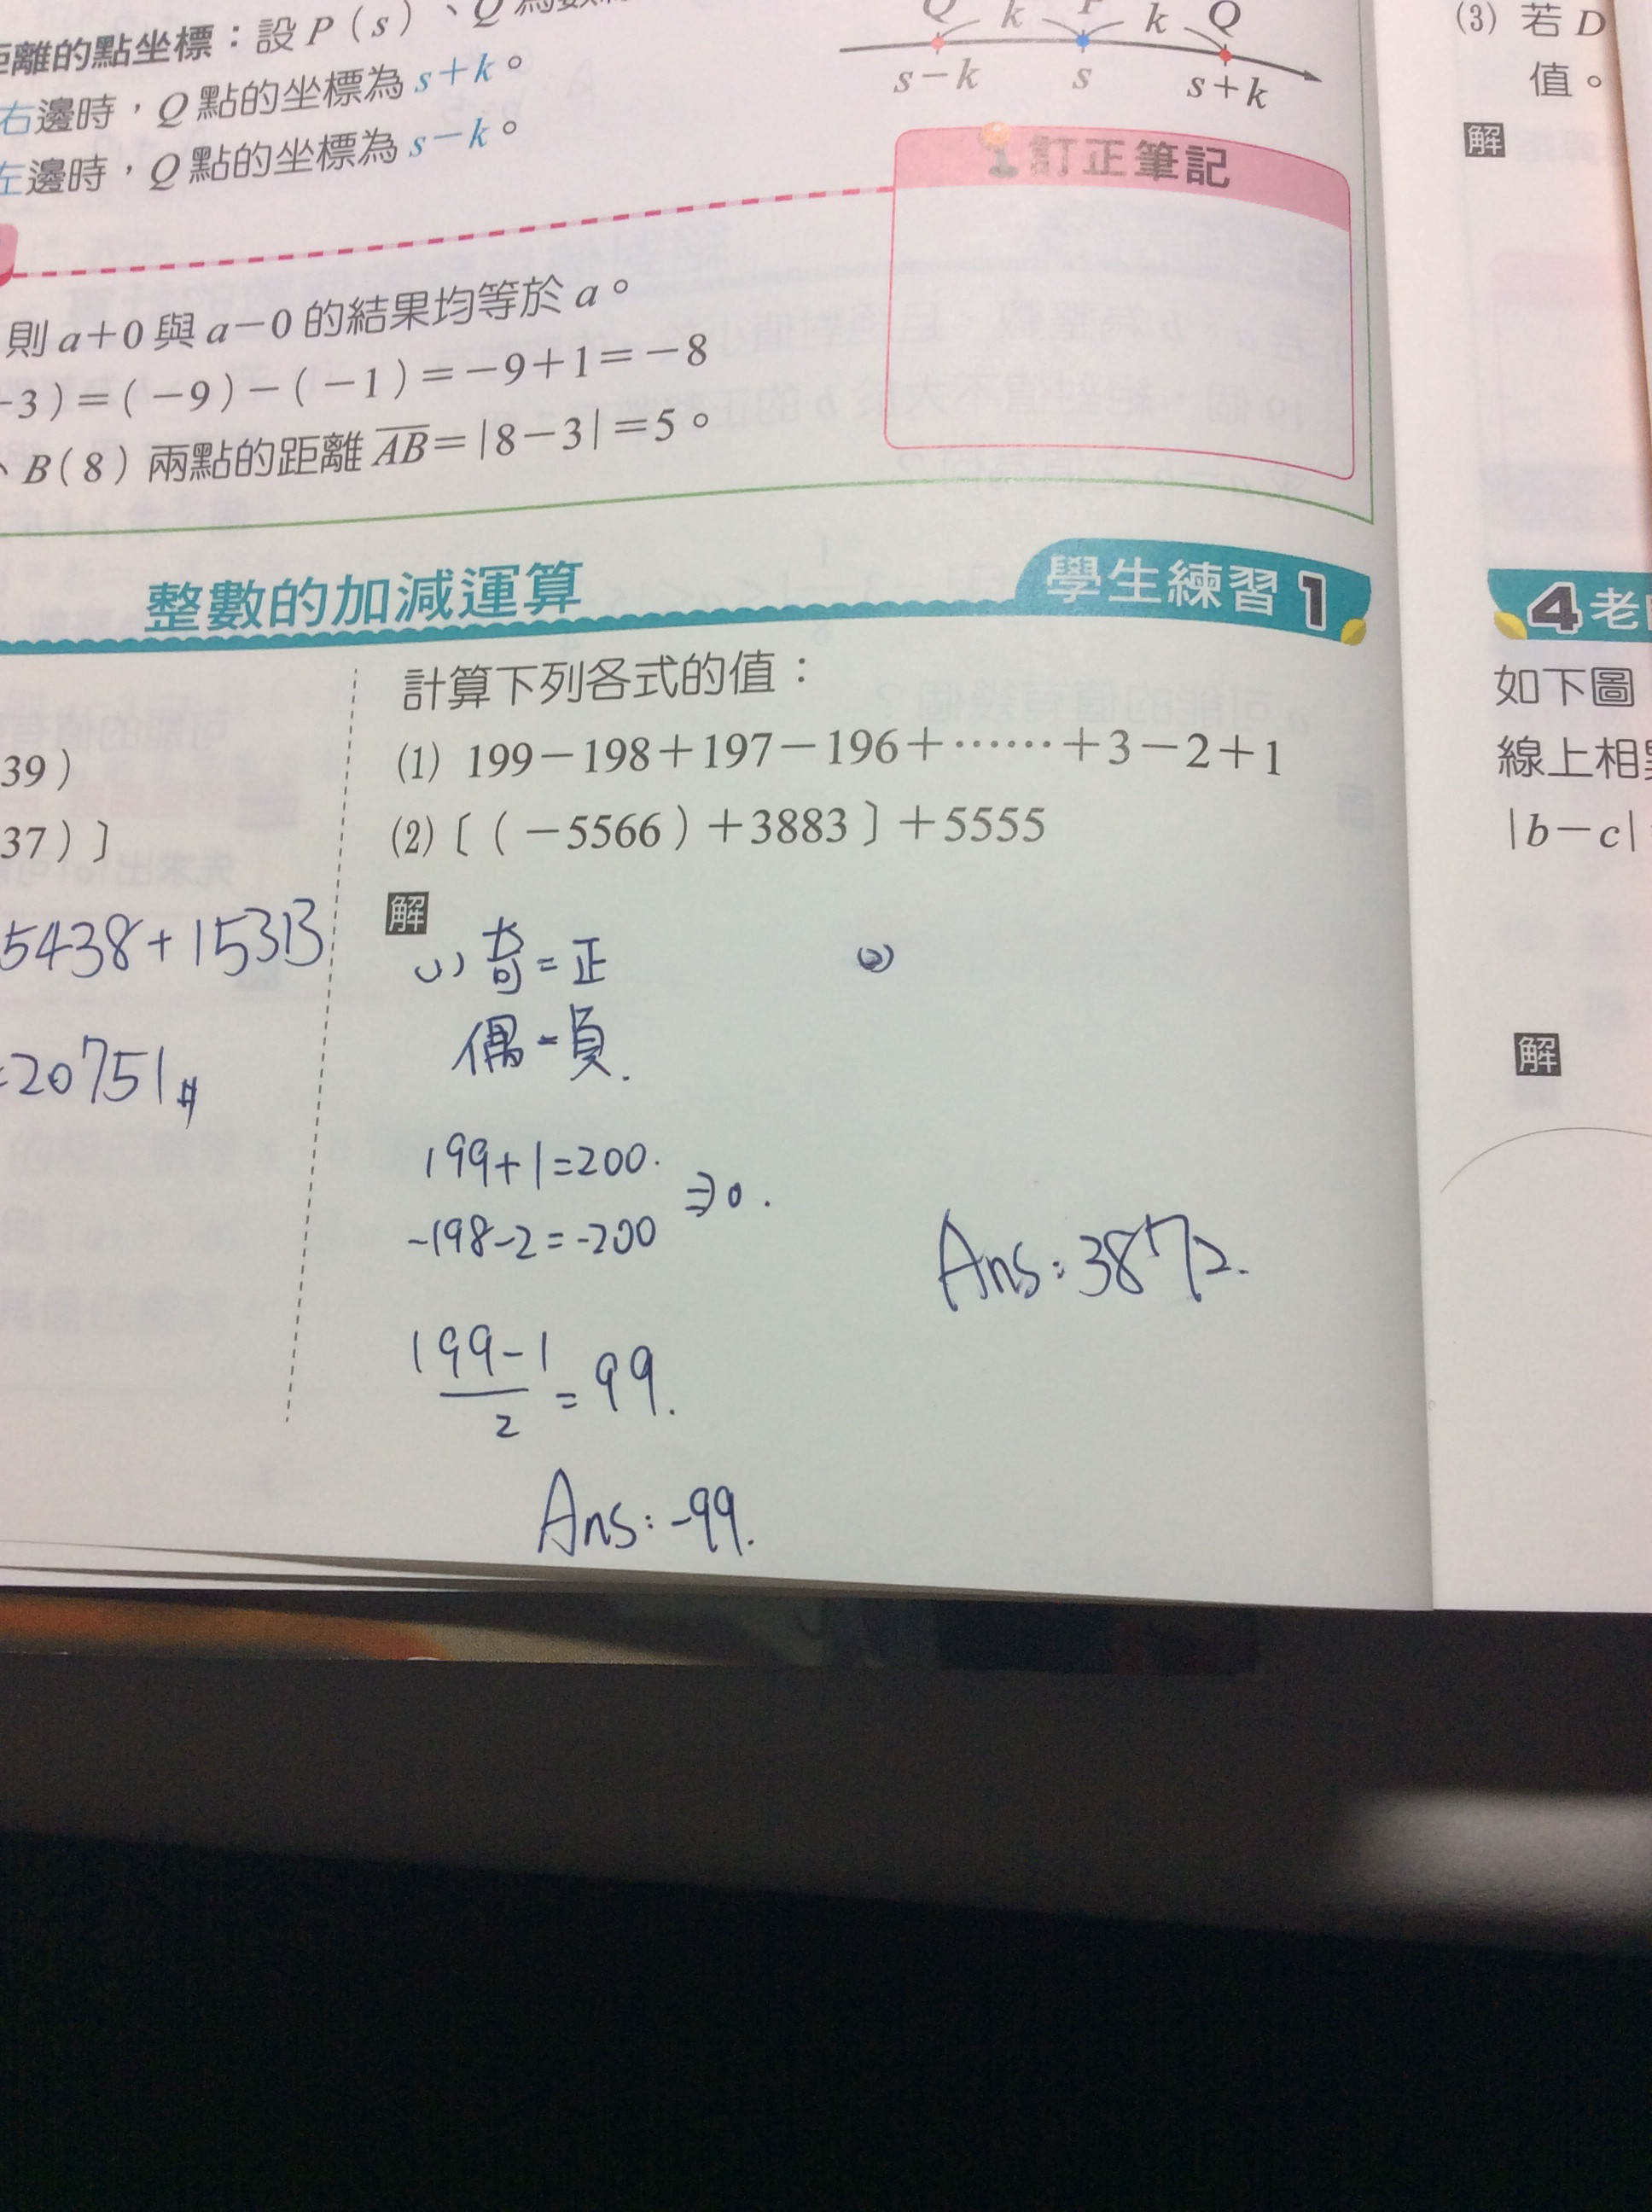 離的點坐標：設 P（s）、Q
Q k P k Q
s－k s s＋k
右邊時，Q 點的坐標為 s＋k。
左邊時，Q 點的坐標為 s－k。
訂正筆記
則 a＋0 與 a－0 的結果均等於 a。
－3）＝(－9)－(－1)＝－9＋1＝－8
、B（8）兩點的距離 AB＝|8－3|＝5。
整數的加減運算 學生練習 1
39）
37）〕
5438+15313
=20751#
計算下列各式的值：
(1) 199－198＋197－196＋……＋3－2＋1
(2)〔（－5566）＋3883〕＋5555
解
(1) 奇=正
偶=負.
199+1=200.
-198-2=-200
⇒0.
199-1
2
=99.
Ans:-99.
(2)
Ans:3872.
(3) 若 D
值。
解
4 老
如下圖
線上相
|b－c|
解